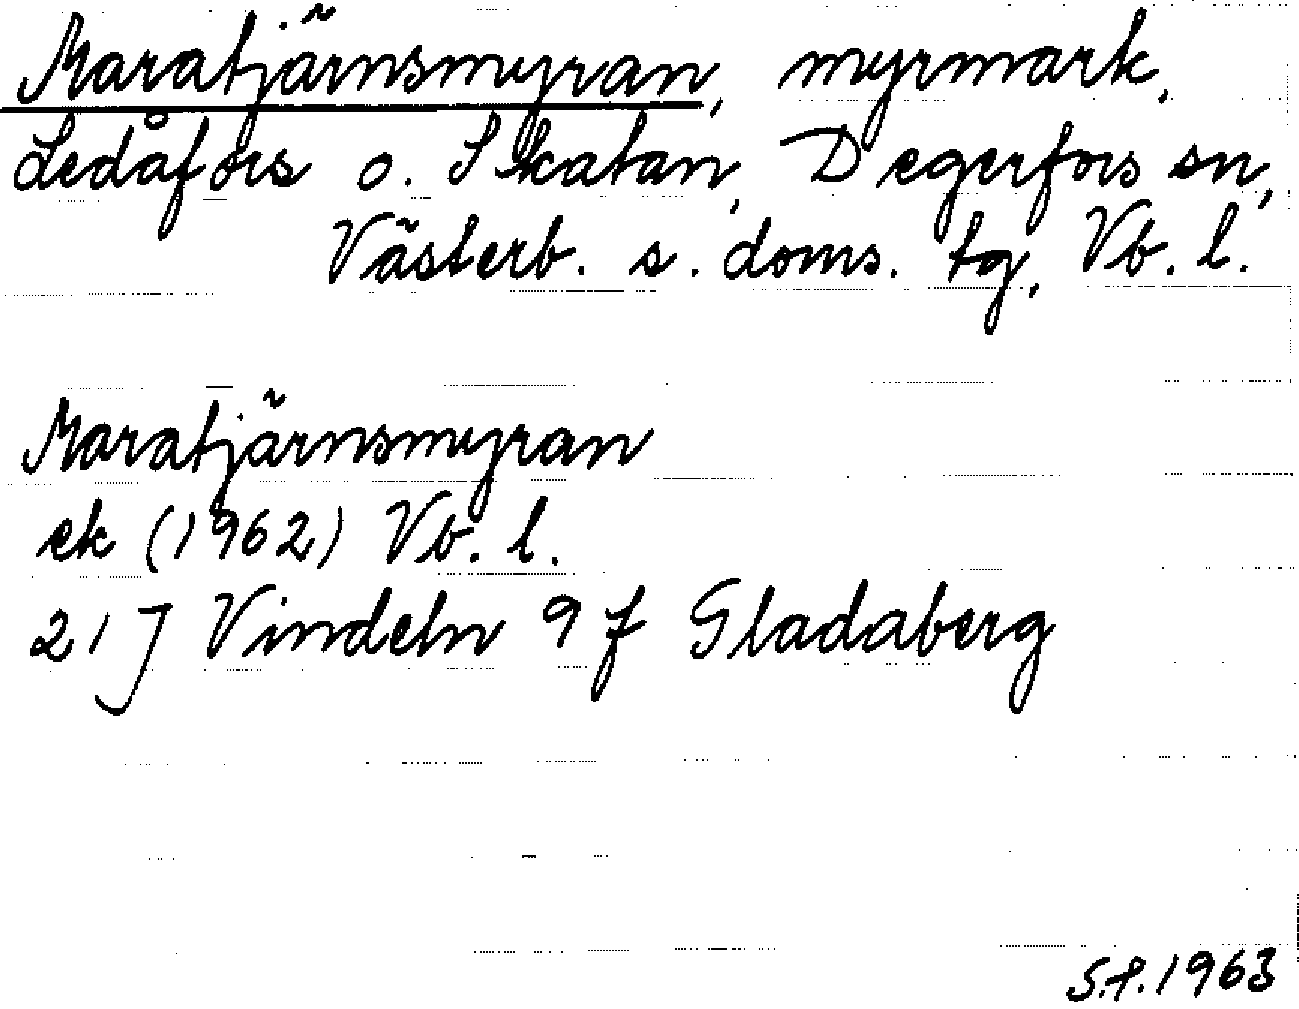 Maratjärnsmyran, myrmark,
Ledåfors o. Skatan, Degerfors sn,
Västerb. s. doms. tg, Vb. l.
Maratjärnsmyran
ek (1962) Vb. l.
21 J Vindeln 9 f Gladaberg
S.P. 1963